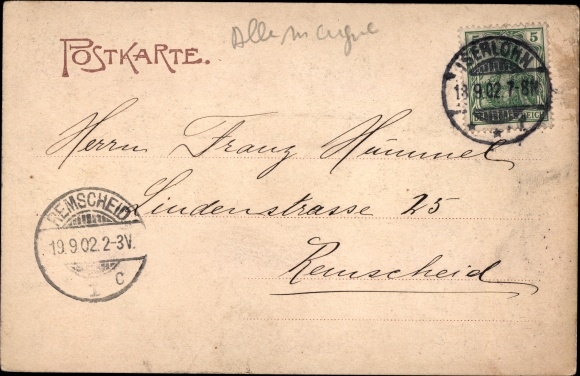 Allemagne
POSTKARTE.
5
ISERLOHN
18.9.02.7-8N
* * 1
Herrn Franz Hümmel
Lindenstrasse 25
Remscheid
REMSCHEID
19.9.02.2-3V.
1 c